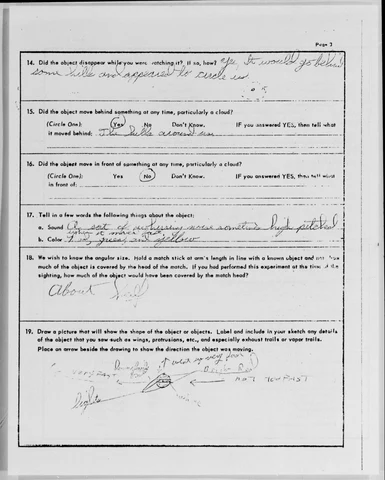 Page 3
14. Did the object disappear while you were watching it? If so, how? Yes. It would go behind
some hills and appeared to circle us
15. Did the object move behind something at any time, particularly a cloud?
(Circle One): Yes No Don't Know. IF you answered YES, then tell what
it moved behind: The hills around us
16. Did the object move in front of something at any time, particularly a cloud?
(Circle One): Yes No Don't Know. IF you answered YES, then tell what
in front of:
17. Tell in a few words the following things about the object:
a. Sound A sort of whirring noise sometimes high pitched
when it moves fast
b. Color Red, green, and yellow
18. We wish to know the angular size. Hold a match stick at arm's length in line with a known object and note how
much of the object is covered by the head of the match. If you had performed this experiment at the time of the
sighting, how much of the object would have been covered by the match head?
About half
19. Draw a picture that will show the shape of the object or objects. Label and include in your sketch any details
of the object that you saw such as wings, protrusions, etc., and especially exhaust trails or vapor trails.
Place an arrow beside the drawing to show the direction the object was moving.
it went up very fast
Bright Red
very fast
not too fast
lights